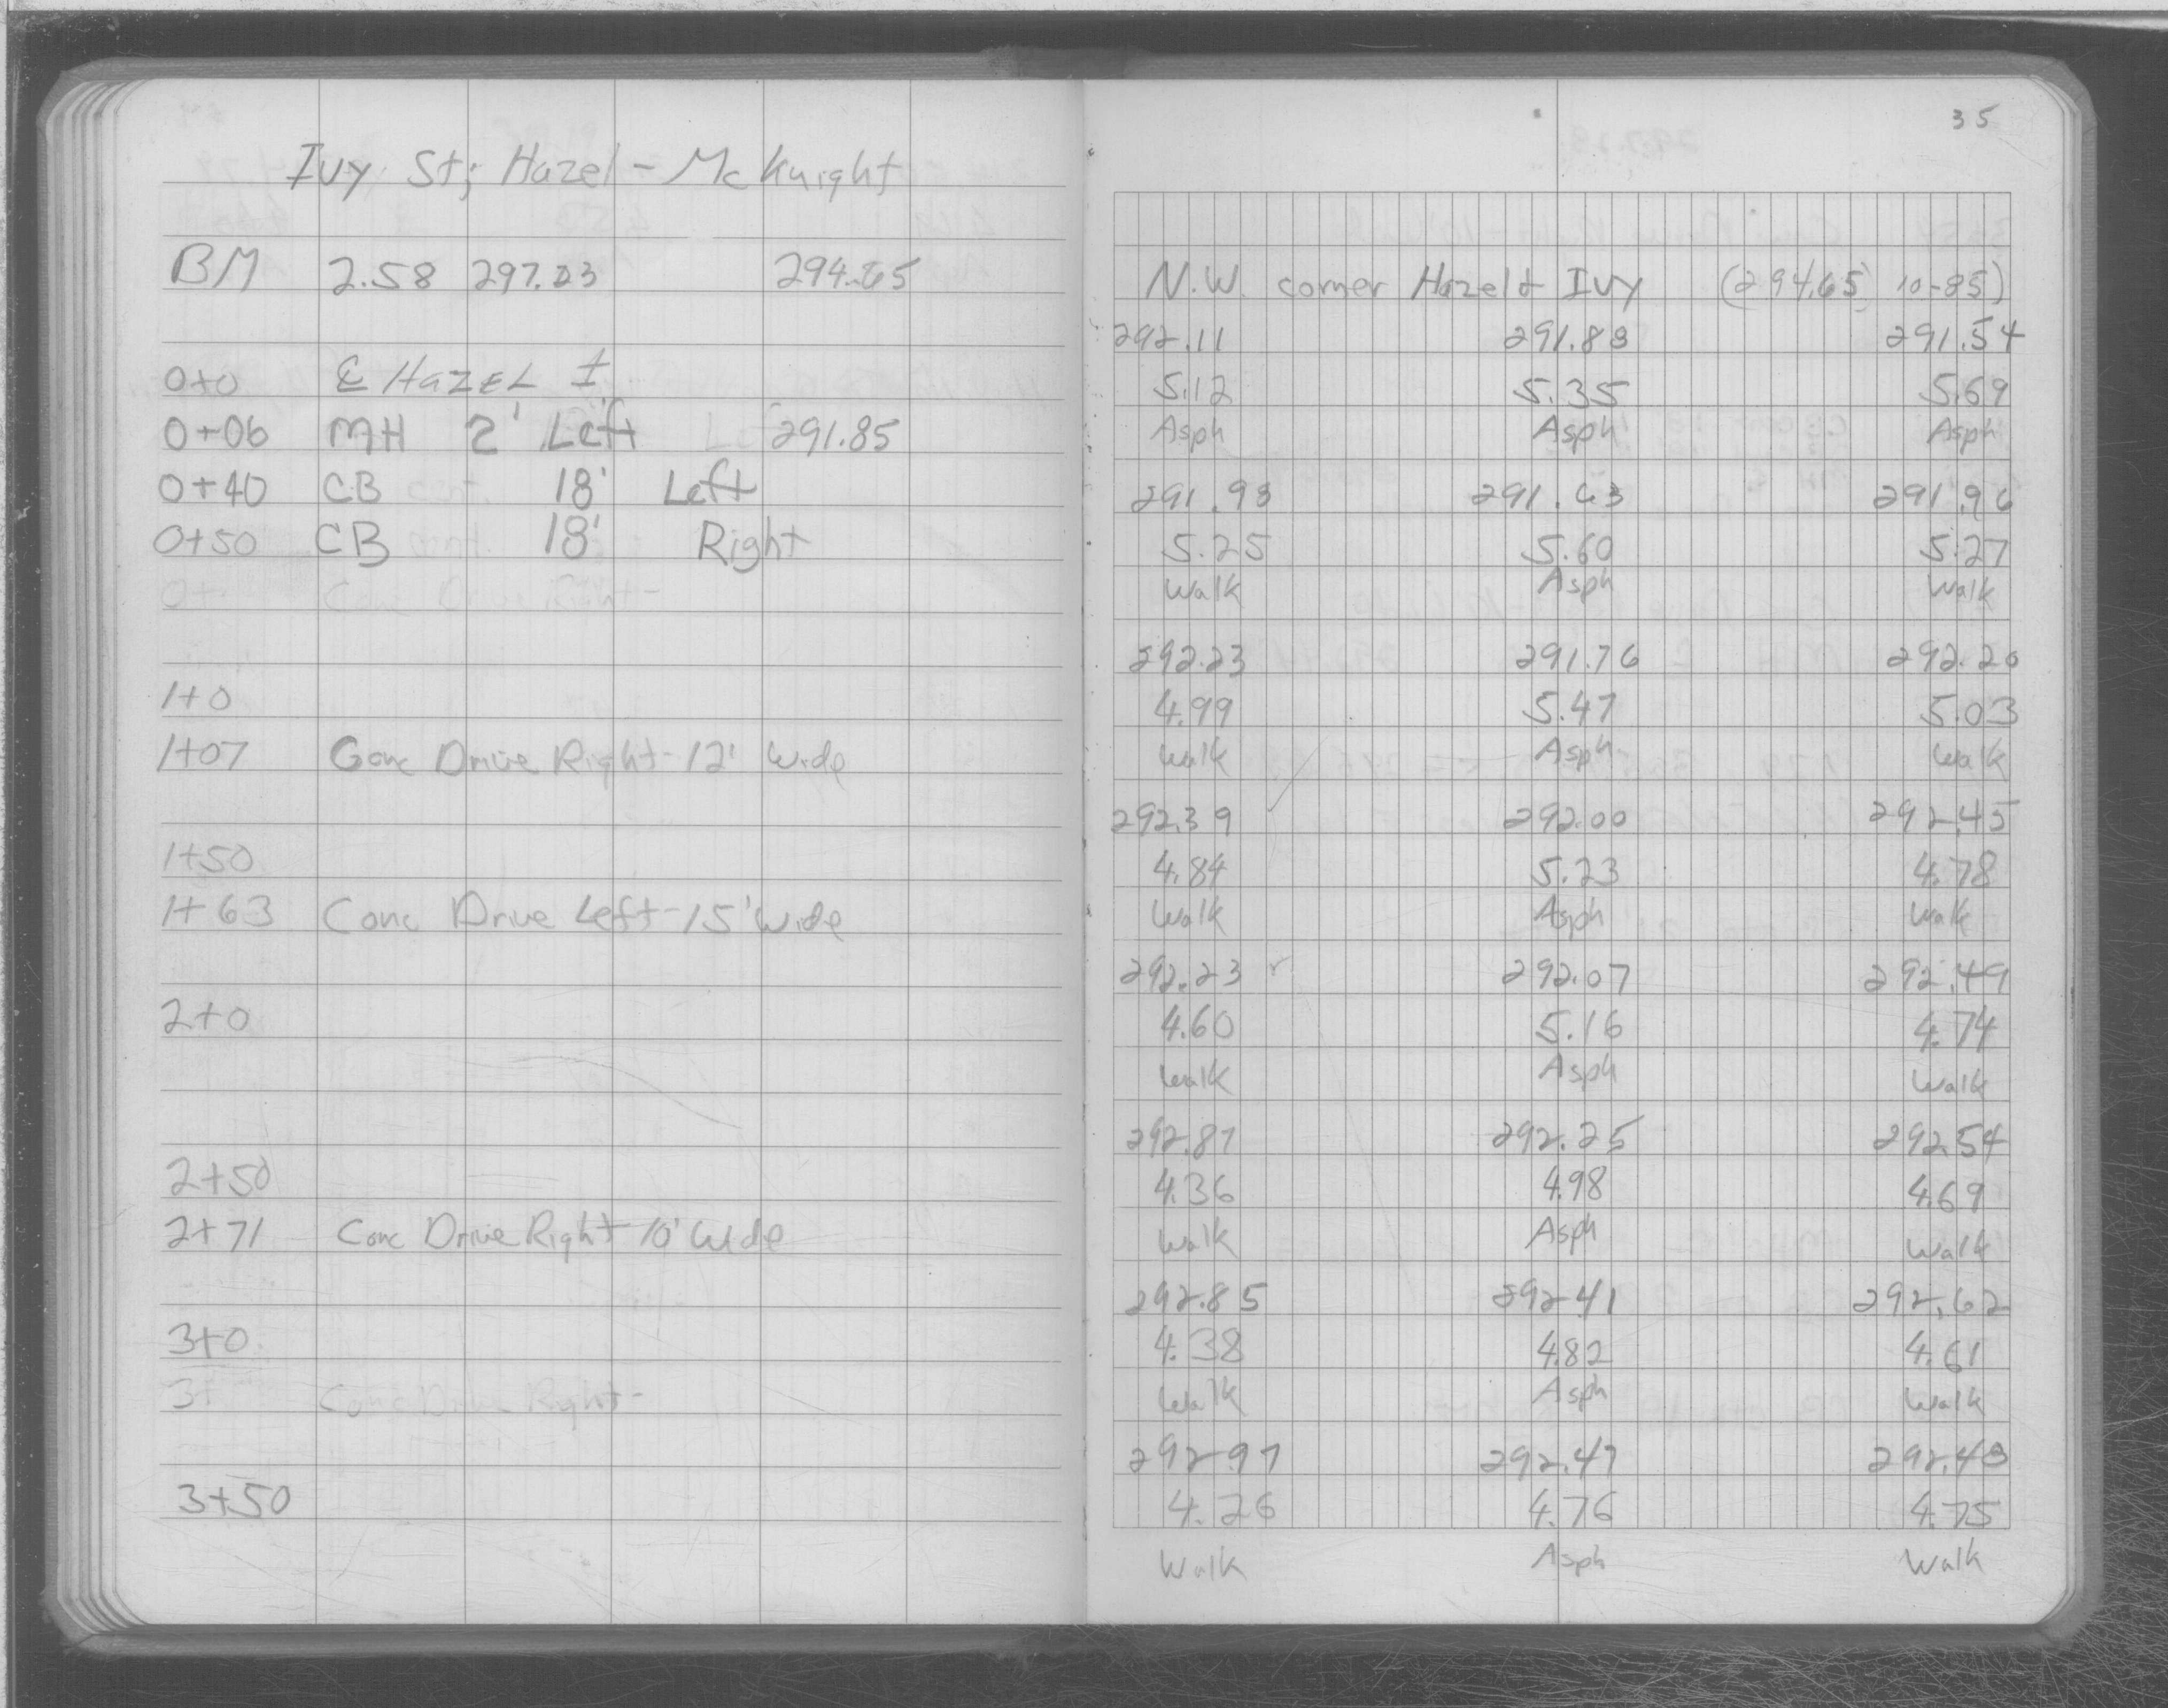 35
Ivy St; Hazel - McKnight
BM 2.58 297.23 294.65
0+0 ℄ HAZEL
0+06 MH 2' Left 291.85
0+40 CB 18' Left
0+50 CB 18' Right
0+ Conc Drive Right-
1+0
1+07 Conc Drive Right-12' Wide
1+50
1+63 Conc Drive Left-15' Wide
2+0
2+50
2+71 Conc Drive Right 10' Wide
3+0
3+ Conc Drive Right-
3+50
N.W. corner Hazel & Ivy (294.65 10-85)
292.11 291.88 291.54
5.12 5.35 5.69
Asph Asph Asph
291.98 291.63 291.96
5.25 5.60 5.27
Walk Asph Walk
292.23 291.76 292.20
4.99 5.47 5.03
Walk Asph Walk
292.39 292.00 292.45
4.84 5.23 4.78
Walk Asph Walk
292.23 292.07 292.49
4.60 5.16 4.74
Walk Asph Walk
292.87 292.25 292.54
4.36 4.98 4.69
Walk Asph Walk
292.85 292.41 292.62
4.38 4.82 4.61
Walk Asph Walk
292.97 292.47 292.48
4.26 4.76 4.75
Walk Asph Walk